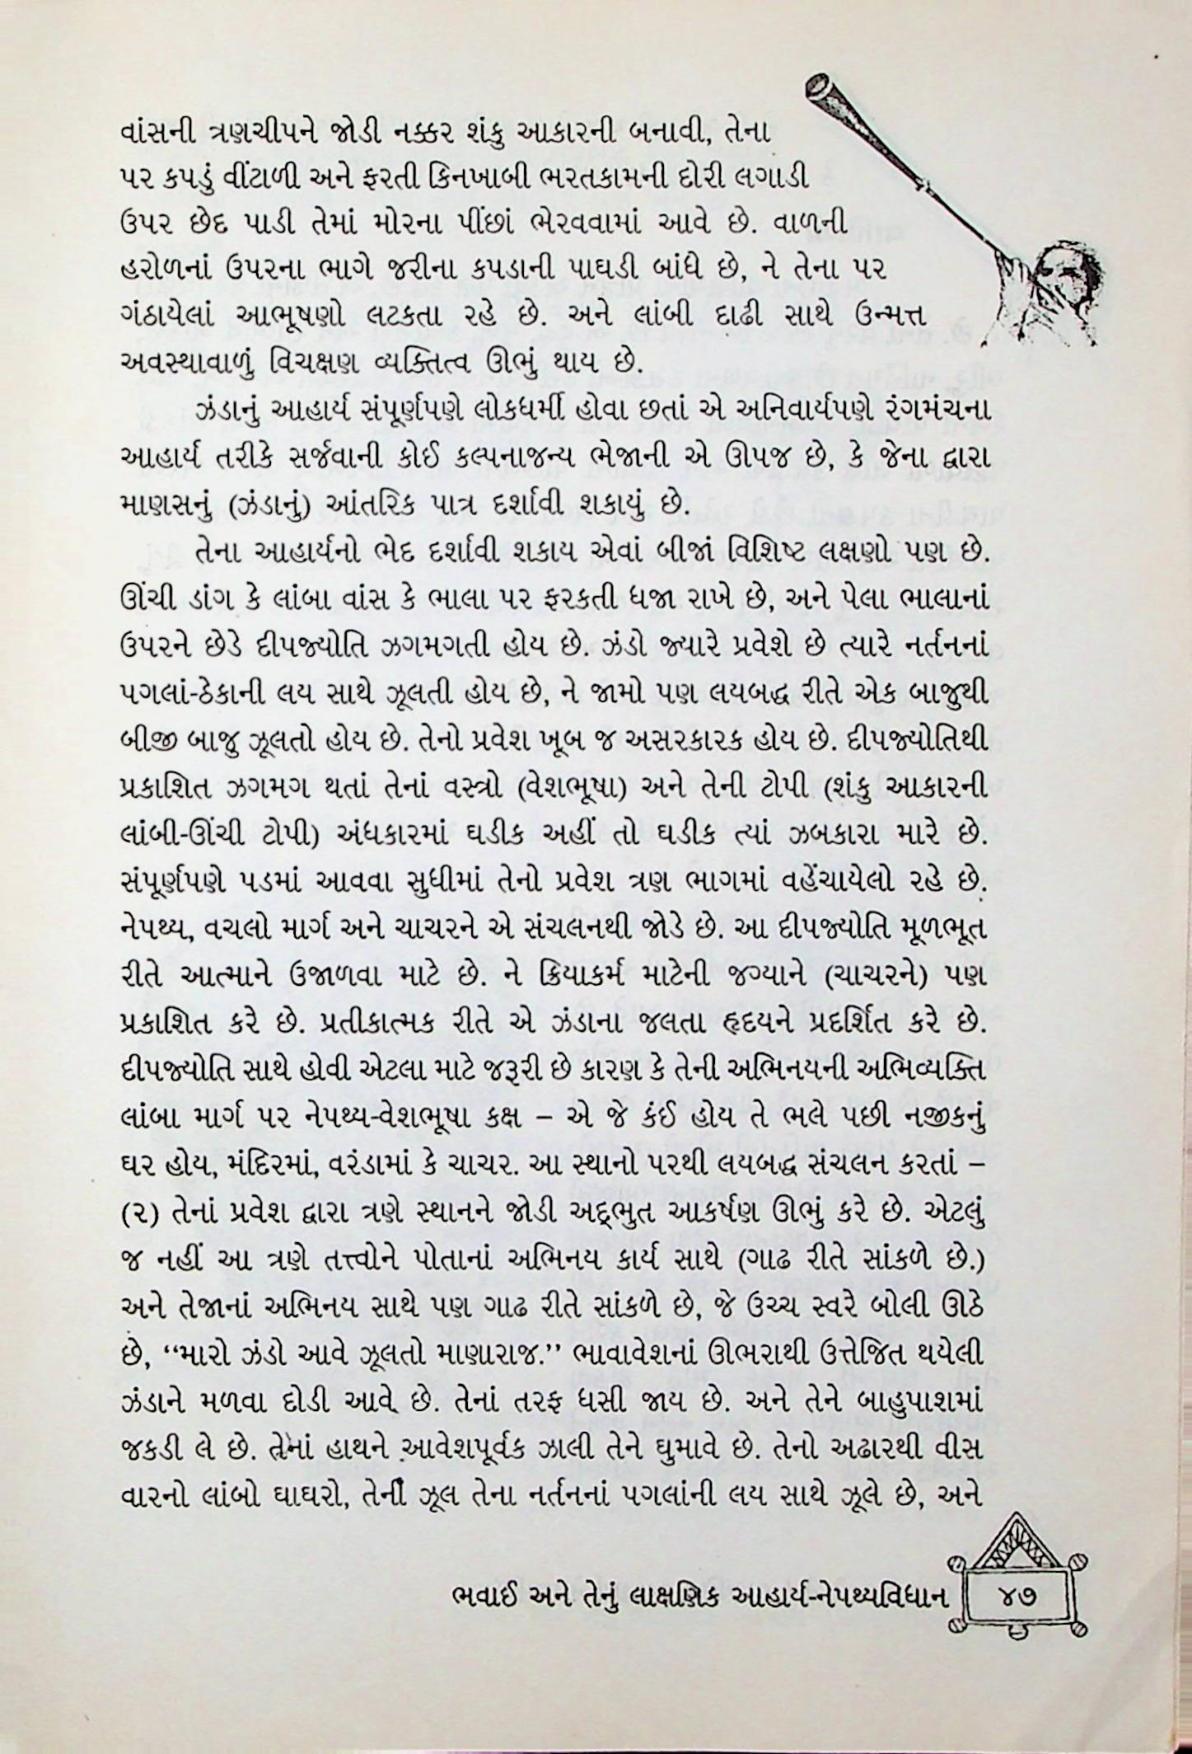 વાંસની ત્રણચીપને જોડી નક્કર શંકુ આકારની બનાવી, તેના
પર કપડું વીંટાળી અને ફરતી કિનખાબી ભરતકામની દોરી લગાડી
ઉપર છેદ પાડી તેમાં મોરના પીંછાં ભેરવવામાં આવે છે. વાળની
હરોળનાં ઉપરના ભાગે જરીના કપડાની પાઘડી બાંધે છે, ને તેના પર
ગંઠાયેલાં આભૂષણો લટકતા રહે છે. અને લાંબી દાઢી સાથે ઉન્મત્ત
અવસ્થાવાળું વિચક્ષણ વ્યક્તિત્વ ઊભું થાય છે.
ઝંડાનું આહાર્ય સંપૂર્ણપણે લોકધર્મી હોવા છતાં એ અનિવાર્યપણે રંગમંચના
આહાર્ય તરીકે સર્જવાની કોઈ કલ્પનાજન્ય ભેજાની એ ઊપજ છે, કે જેના દ્વારા
માણસનું (ઝંડાનું) આંતરિક પાત્ર દર્શાવી શકાયું છે.
તેના આહાર્યનો ભેદ દર્શાવી શકાય એવાં બીજાં વિશિષ્ટ લક્ષણો પણ છે.
ઊંચી ડાંગ કે લાંબા વાંસ કે ભાલા પર ફરકતી ધજા રાખે છે, અને પેલા ભાલાનાં
ઉપરને છેડે દીપજ્યોતિ ઝગમગતી હોય છે. ઝંડો જ્યારે પ્રવેશે છે ત્યારે નર્તનનાં
પગલાં-ઠેકાની લય સાથે ઝૂલતી હોય છે, ને જામો પણ લયબદ્ધ રીતે એક બાજુથી
બીજી બાજુ ઝૂલતો હોય છે. તેનો પ્રવેશ ખૂબ જ અસરકારક હોય છે. દીપજ્યોતિથી
પ્રકાશિત ઝગમગ થતાં તેનાં વસ્ત્રો (વેશભૂષા) અને તેની ટોપી (શંકુ આકારની
લાંબી-ઊંચી ટોપી) અંધકારમાં ઘડીક અહીં તો ઘડીક ત્યાં ઝબકારા મારે છે.
સંપૂર્ણપણે પડમાં આવવા સુધીમાં તેનો પ્રવેશ ત્રણ ભાગમાં વહેંચાયેલો રહે છે.
નેપથ્ય, વચલો માર્ગ અને ચાચરને એ સંચલનથી જોડે છે. આ દીપજ્યોતિ મૂળભૂત
રીતે આત્માને ઉજાળવા માટે છે. ને ક્રિયાકર્મ માટેની જગ્યાને (ચાચરને) પણ
પ્રકાશિત કરે છે. પ્રતીકાત્મક રીતે એ ઝંડાના જલતા હૃદયને પ્રદર્શિત કરે છે.
દીપજ્યોતિ સાથે હોવી એટલા માટે જરૂરી છે કારણ કે તેની અભિનયની અભિવ્યક્તિ
લાંબા માર્ગ પર નેપથ્ય-વેશભૂષા કક્ષ – એ જે કંઈ હોય તે ભલે પછી નજીકનું
ઘર હોય, મંદિરમાં, વરંડામાં કે ચાચર. આ સ્થાનો પરથી લયબદ્ધ સંચલન કરતાં –
(૨) તેનાં પ્રવેશ દ્વારા ત્રણે સ્થાનને જોડી અદ્ભુત આકર્ષણ ઊભું કરે છે. એટલું
જ નહીં આ ત્રણે તત્ત્વોને પોતાનાં અભિનય કાર્ય સાથે (ગાઢ રીતે સાંકળે છે.)
અને તેજાનાં અભિનય સાથે પણ ગાઢ રીતે સાંકળે છે, જે ઉચ્ચ સ્વરે બોલી ઊઠે
છે, “મારો ઝંડો આવે ઝૂલતો માણારાજ.” ભાવાવેશનાં ઊભરાથી ઉત્તેજિત થયેલી
ઝંડાને મળવા દોડી આવે છે. તેનાં તરફ ધસી જાય છે. અને તેને બાહુપાશમાં
જકડી લે છે. તેમાં હાથને આવેશપૂર્વક ઝાલી તેને ઘુમાવે છે. તેનો અઢારથી વીસ
વારનો લાંબો ઘાઘરો, તેની ઝૂલ તેના નર્તનનાં પગલાંની લય સાથે ઝૂલે છે, અને
ભવાઈ અને તેનું લાક્ષણિક આહાર્ય-નેપથ્યવિધાન ૪૭